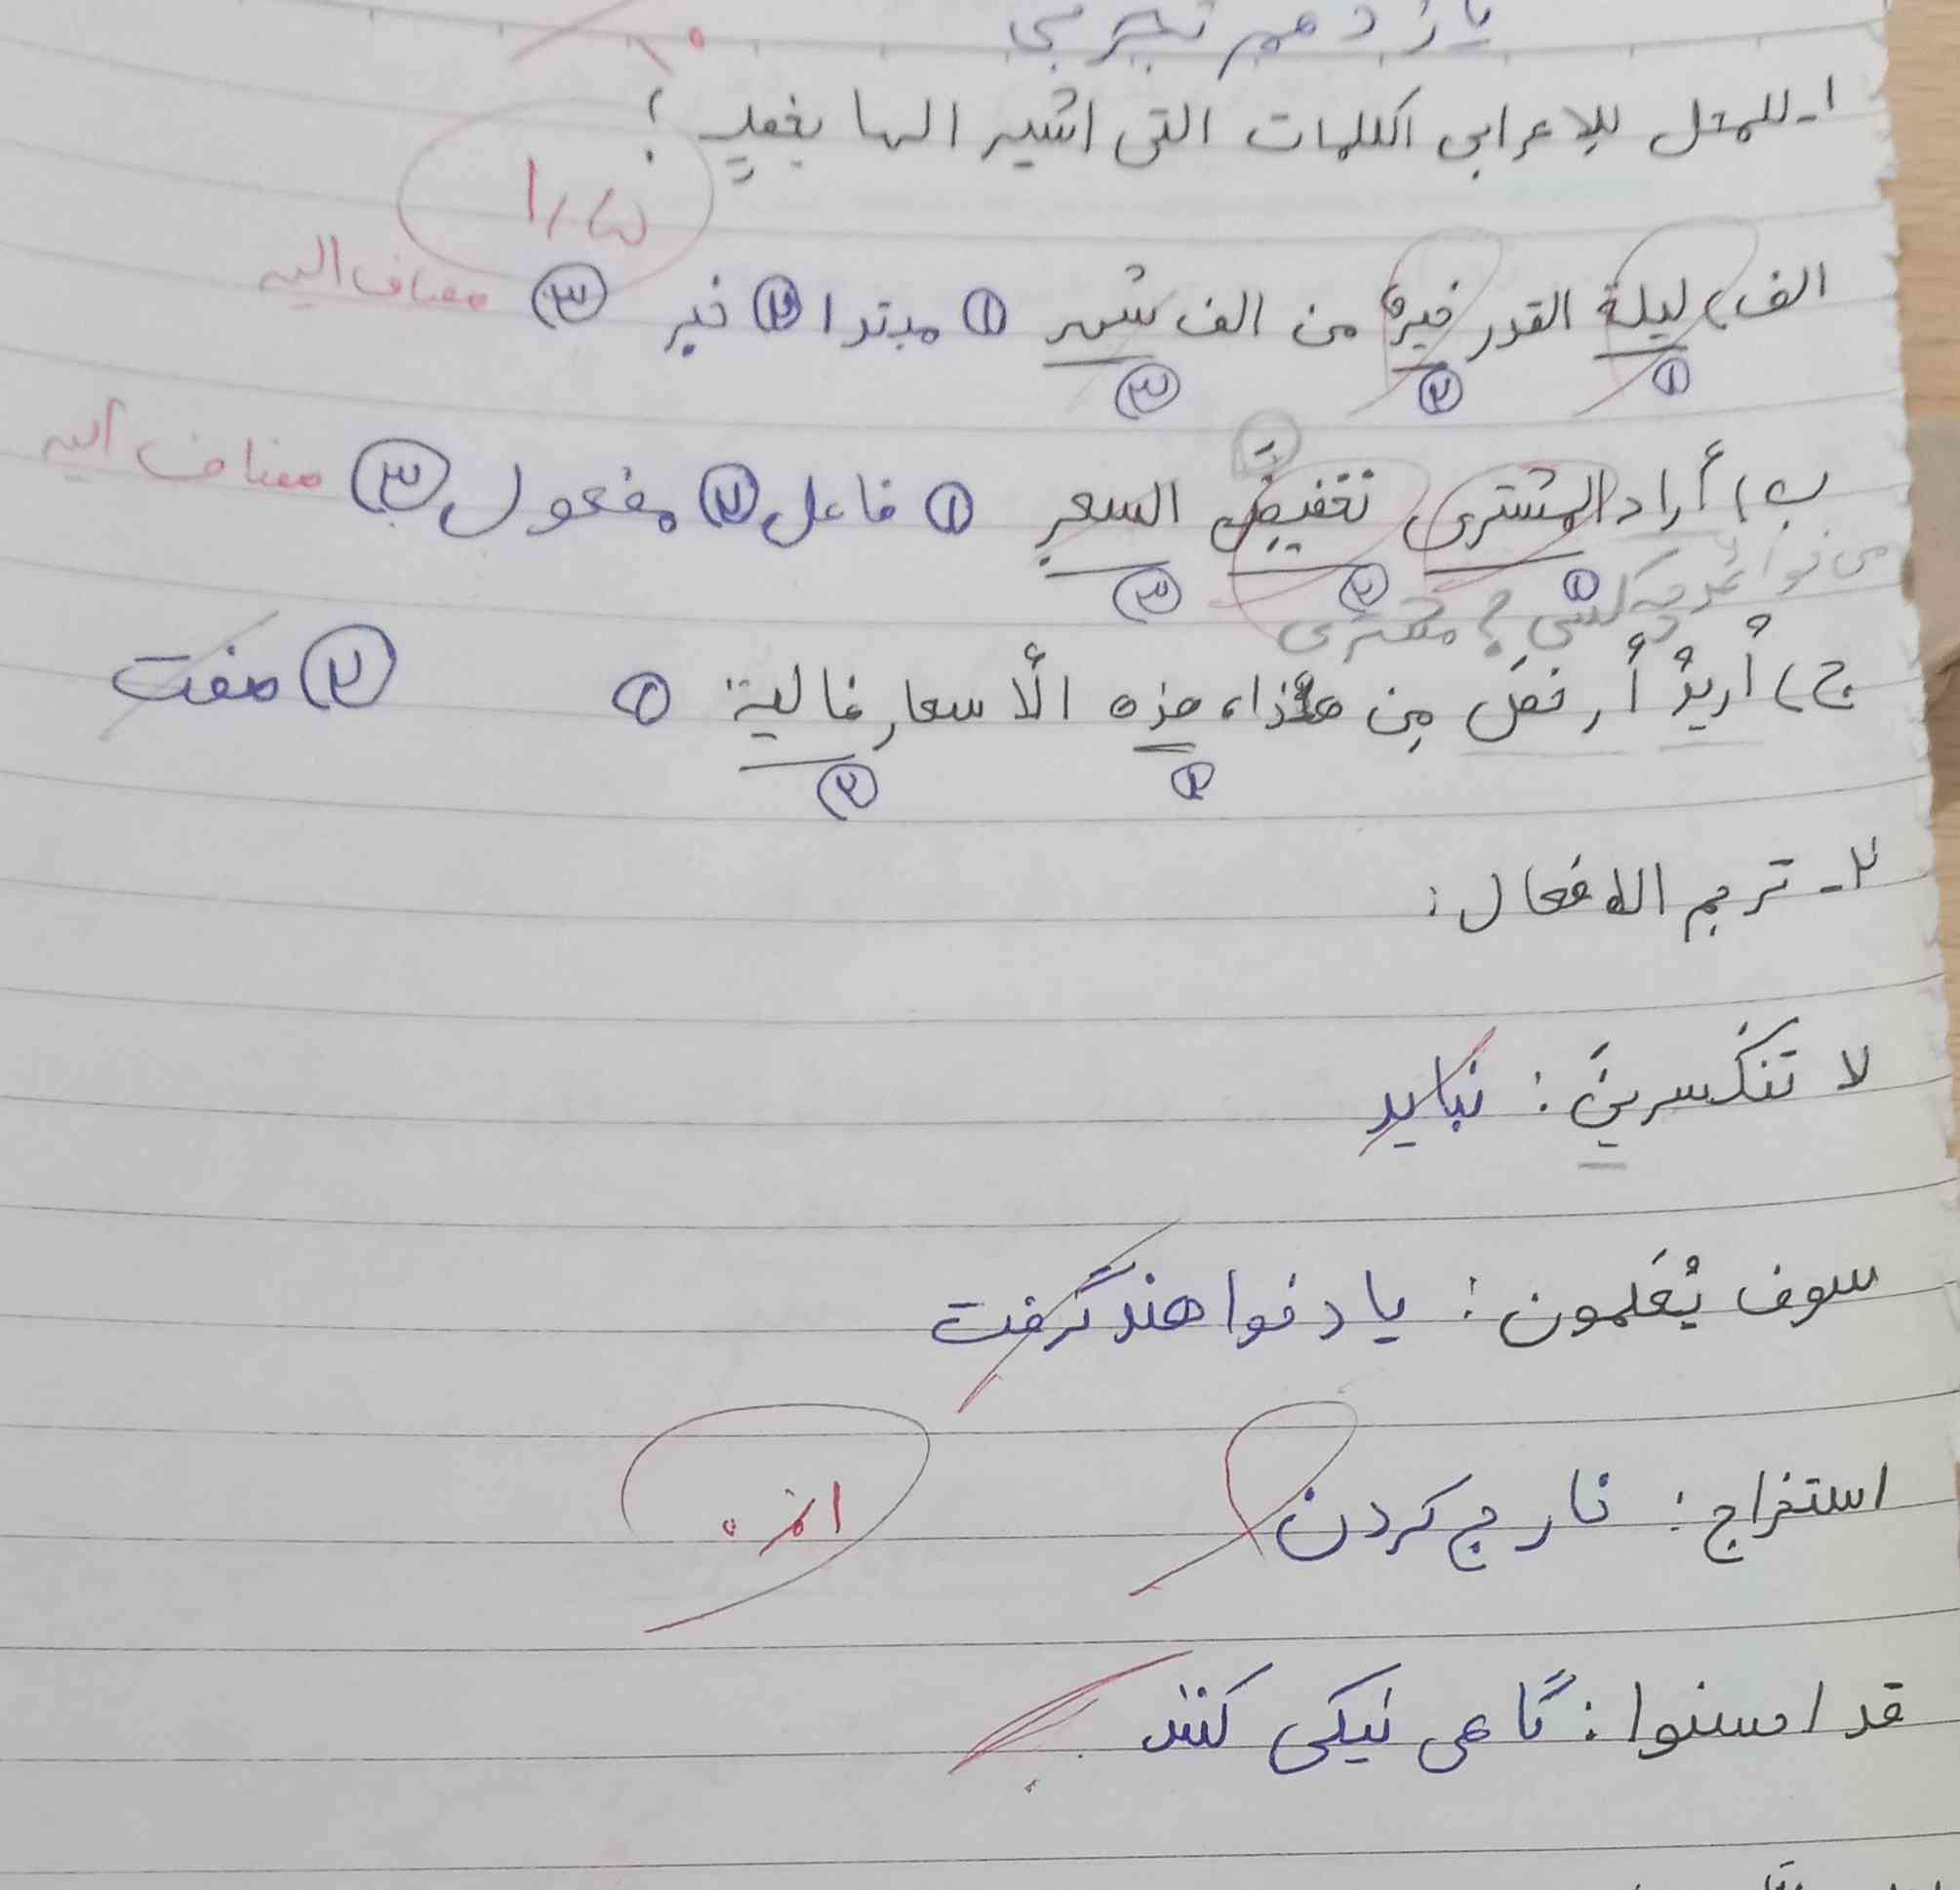 یازدهم تجربی
۱- للمحل للإعرابی الکلمات التی اشیر الیها بخط؛
۱/۵
الف) لیلة القدر خیرٌ من الف شهر ① مبتدا ② خبر ③ مضاف الیه
① ② ③
ب) أراد المشتری تخفیضَ السعرِ ① فاعل ② مفعول ③ مضاف الیه
① ② ③
می خواند چه کسی؟ مشتری
ج) أریدُ أرخصَ مِن هذا، هذه الأسعار غالیة ① ② صفت
① ②
۲- ترجم الافعال:
لا تنکسرینَ: نباید
سوف یُعَلمون: یاد خواهند گرفت
استخراج: خارج کردن
قد احسنوا: گاهی نیکی کنند